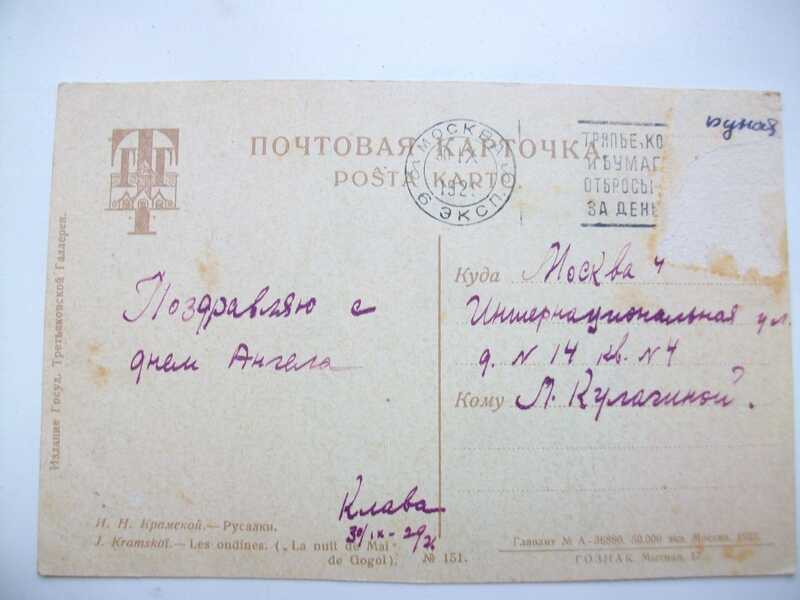 ПОЧТОВАЯ КАРТОЧКА
POŜTA KARTO
МОСКВА
30 IX
192
6 ЭКСП.
ТРЯПЬЕ, КО
И БУМАГ
ОТБРОСЫ
ЗА ДЕНЬ
дунай
Издание Госуд. Третьяковской Галлереи.
Поздравляю с
днем Ангела
Клава
30/IX-29
Куда Москва 4
Интернациональная ул.
д. N 14 кв. N 4
Кому Л. Кулагиной.
И. Н. Крамской.—Русалки.
J. Kramskoï.—Les ondines. („La nuit de Mai“
de Gogol). № 151.
Главлит № А-36880. 50.000 экз. Москва,
ГОЗНАК. Мытная, 17.